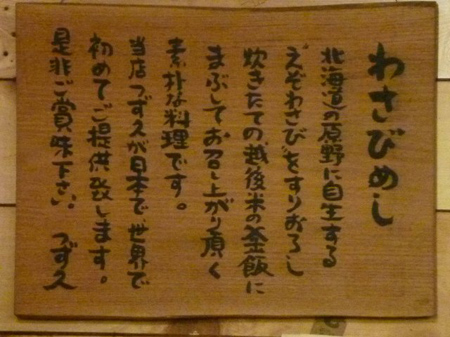 わさびめし
北海道の原野に自生する
"えぞわさび"をすりおろし
炊きたての越後米の釜飯に
まぶしてお召し上がり頂く
素朴な料理です。
当店つず久が日本で世界で
初めてご提供致します。
是非ご賞味下さい。 つず久